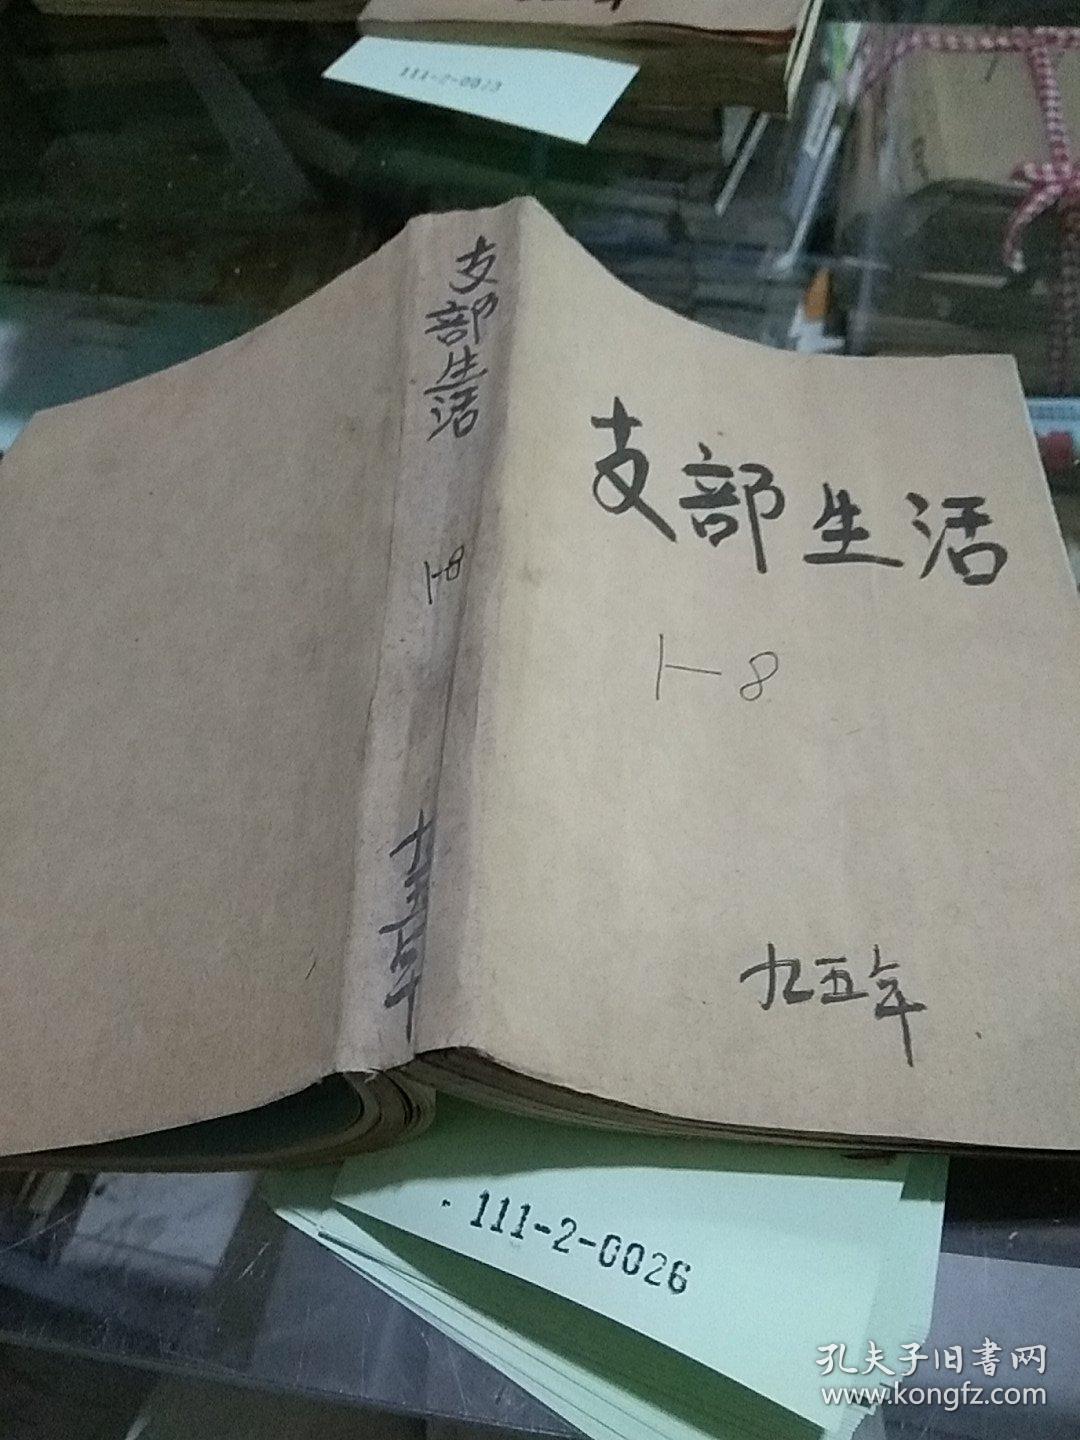 111-2-0023
支部生活
1-8
支部生活
1-8
九五年
111-2-0026
孔夫子旧書网
www.kongfz.com